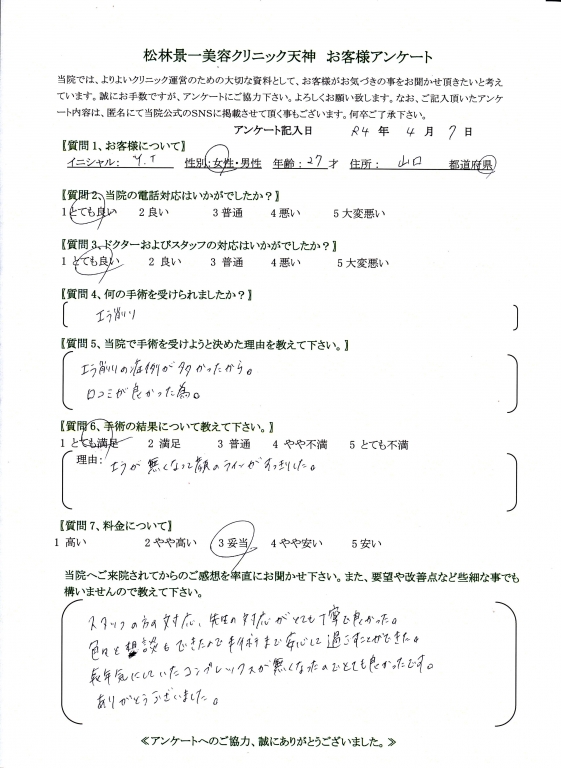 松林景一美容クリニック天神　お客様アンケート
当院では、よりよいクリニック運営のための大切な資料として、お客様がお気づきの事をお聞かせ頂きたいと考え
ています。誠にお手数ですが、アンケートにご協力下さい。よろしくお願い致します。なお、ご記入頂いたアンケ
ート内容は、匿名にて当院公式のSNSに掲載させて頂く事もございます。何卒ご了承下さい。
アンケート記入日　R4 年 4 月 7 日
〖質問1、お客様について〗
イニシャル： Y.T　性別：女性・男性　年齢：27 才　住所： 山口　都道府県
〖質問2、当院の電話対応はいかがでしたか？〗
1 とても良い　2 良い　3 普通　4 悪い　5 大変悪い
〖質問3、ドクターおよびスタッフの対応はいかがでしたか？〗
1 とても良い　2 良い　3 普通　4 悪い　5 大変悪い
〖質問4、何の手術を受けられましたか？〗
エラ削り
〖質問5、当院で手術を受けようと決めた理由を教えて下さい。〗
エラ削りの症例が多かったから。
口コミが良かった為。
〖質問6、手術の結果について教えて下さい。〗
1 とても満足　2 満足　3 普通　4 やや不満　5 とても不満
理由： エラが無くなって顔のラインがすっきりした。
〖質問7、料金について〗
1 高い　2 やや高い　3 妥当　4 やや安い　5 安い
当院へご来院されてからのご感想を率直にお聞かせ下さい。また、要望や改善点など些細な事でも
構いませんので教えて下さい。
スタッフの方の対応、先生の対応がとても丁寧で良かった。
色々と相談もできたので手術まで安心して過ごすことができた。
長年気にしていたコンプレックスが無くなったのでとても良かったです。
ありがとうございました。
≪アンケートへのご協力、誠にありがとうございました。≫